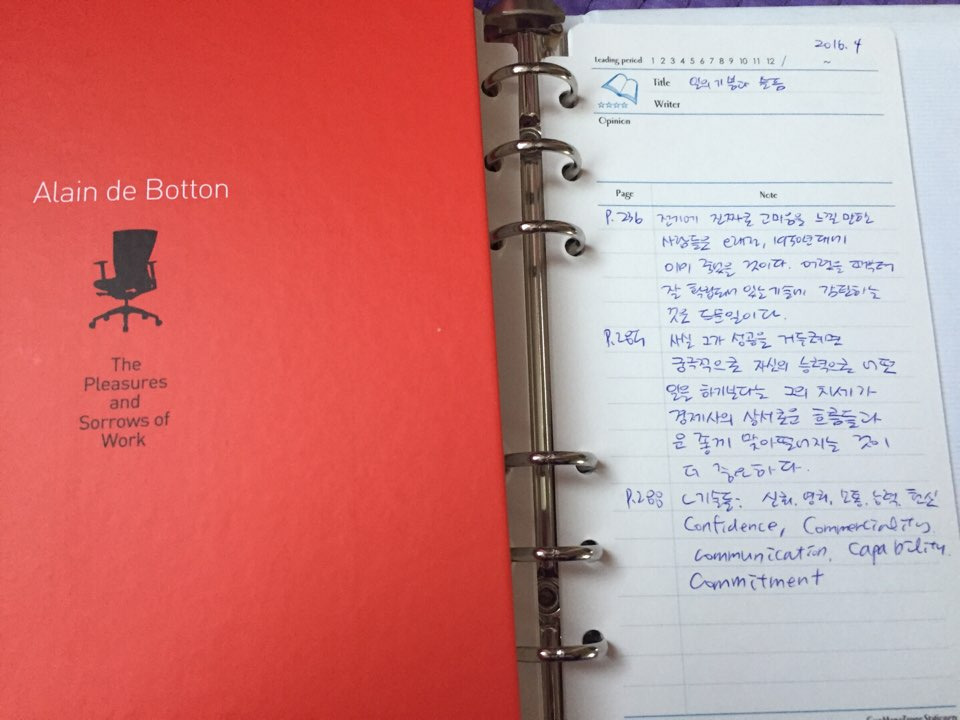 Alain de Botton
The
Pleasures
and
Sorrows of
Work
2016. 4
Leading period 1 2 3 4 5 6 7 8 9 10 11 12 / ~
Title 일의 기쁨과 슬픔
Writer
Opinion
Page Note
P. 236 전기에 진짜로 고마움을 느낄 만한
사람들은 1950년대에
이미 죽었을 것이다.
잘 확립되어 있는 기술에 감탄하는
것은 드문 일이다.
P. 284 사실 그가 성공을 거두려면
궁극적으로 자신의 능력으로 어떤
일을 하기보다는 그의 치세가
경제사의 상서로운 흐름들과
운 좋게 맞아떨어지는 것이
더 중요하다.
P. 288 C기술들: 소통, 능력, 헌신
Confidence, Commerciality,
Communication, Capability.
Commitment